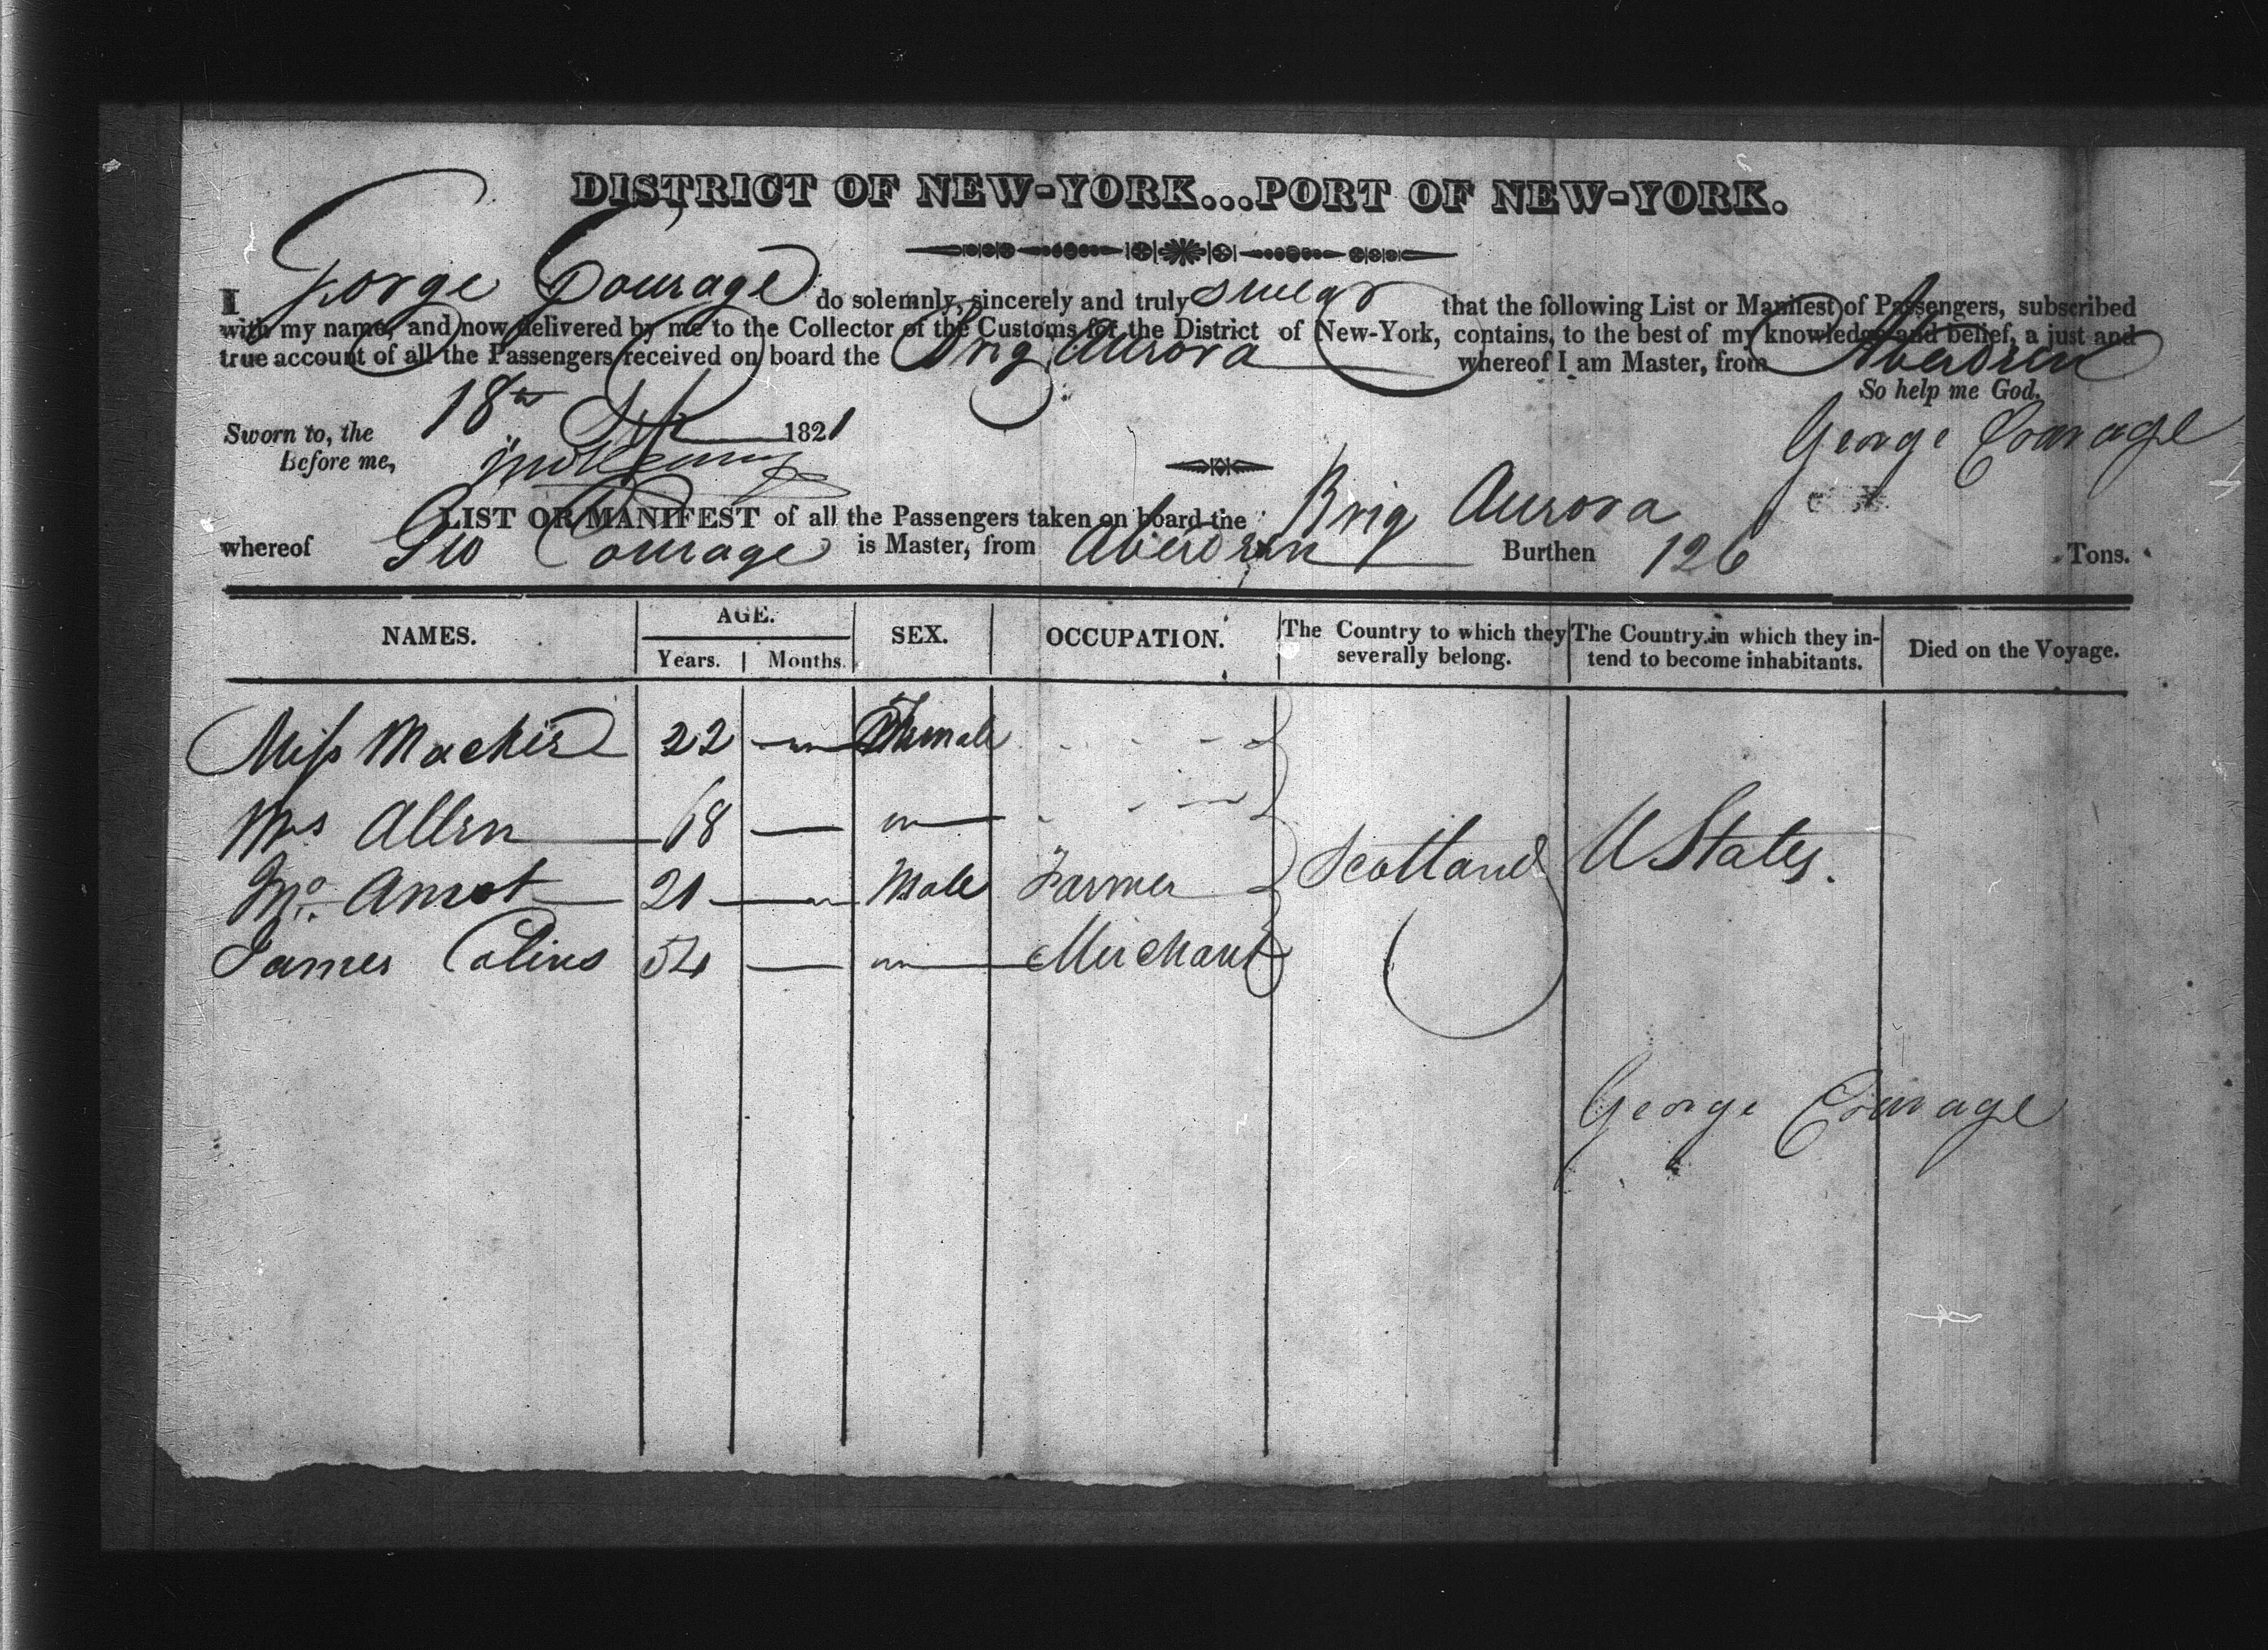 DISTRICT OF NEW-YORK...PORT OF NEW-YORK.
I George Courage do solemnly, sincerely and truly swear that the following List or Manifest of Passengers, subscribed
with my name, and now delivered by me to the Collector of the Customs for the District of New-York, contains, to the best of my knowledge and belief, a just and
true account of all the Passengers received on board the Brig Aurora whereof I am Master, from Aberdeen
So help me God.
Sworn to, the 18th 1821
George Courage
Before me,
LIST OR MANIFEST of all the Passengers taken on board the Brig Aurora
whereof Geo Courage is Master, from Aberdeen Burthen 126 Tons.
NAMES. AGE. SEX. OCCUPATION. The Country to which they severally belong. The Country in which they in-tend to become inhabitants. Died on the Voyage.
Years. Months.
Miss Mackie 22 — Female
Mrs Allen 68 —
Mr. Amot 21 — Male Farmer Scotland U States.
James Colins 54 — Merchant
George Courage